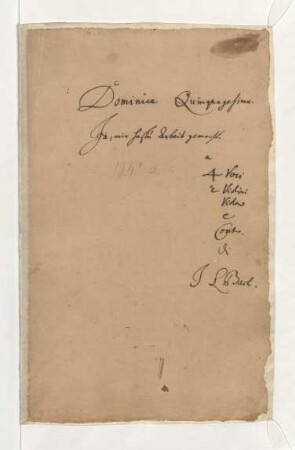 Dominica Quinquagesimae.
Ja, mir hastu Arbeit gemacht.
a
4 Voci
2 Violini
Viola
e
Cont.
di
J L Bach.